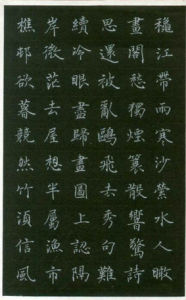 穐江帶雨寒沙縈水人瞰
畫閣愁獨煙蓑散響驚詩
思還被亂鷗飛去秀句難
續冷眼盡歸畫圖上認隔
岸微茫云屋想半屬漁市
樵邨欲暮競然竹湏信風